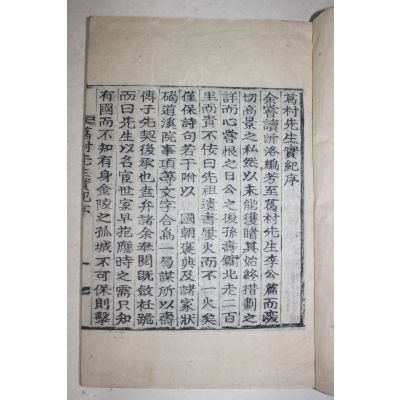 葛村先生實紀序
余嘗讀沂洛編芳至葛村先生李公篇而慶
切高景之私然以未能獲睹其始終措劃之
詳而心嘗恨之日公之後孫壽鏞北走二百
里而責不佞曰先祖遺書屢火而不一火矣
僅保詩句若干附以國朝褒典及諸家狀
碣道溪院事項等文字合爲一局謀所以壽
傳子先契後承也盍弁諸余奉閱旣斂衽跪
而曰先生以名宦世家早抱應時之需只知
有國而不知有身金陵之孤城不可保則擊
葛村先生實紀序
一